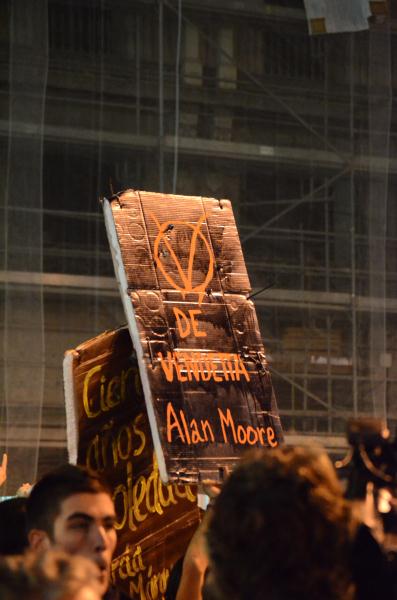 V
DE
VENDETTA
Alan Moore
Cien
años
oledad
rcía
Már